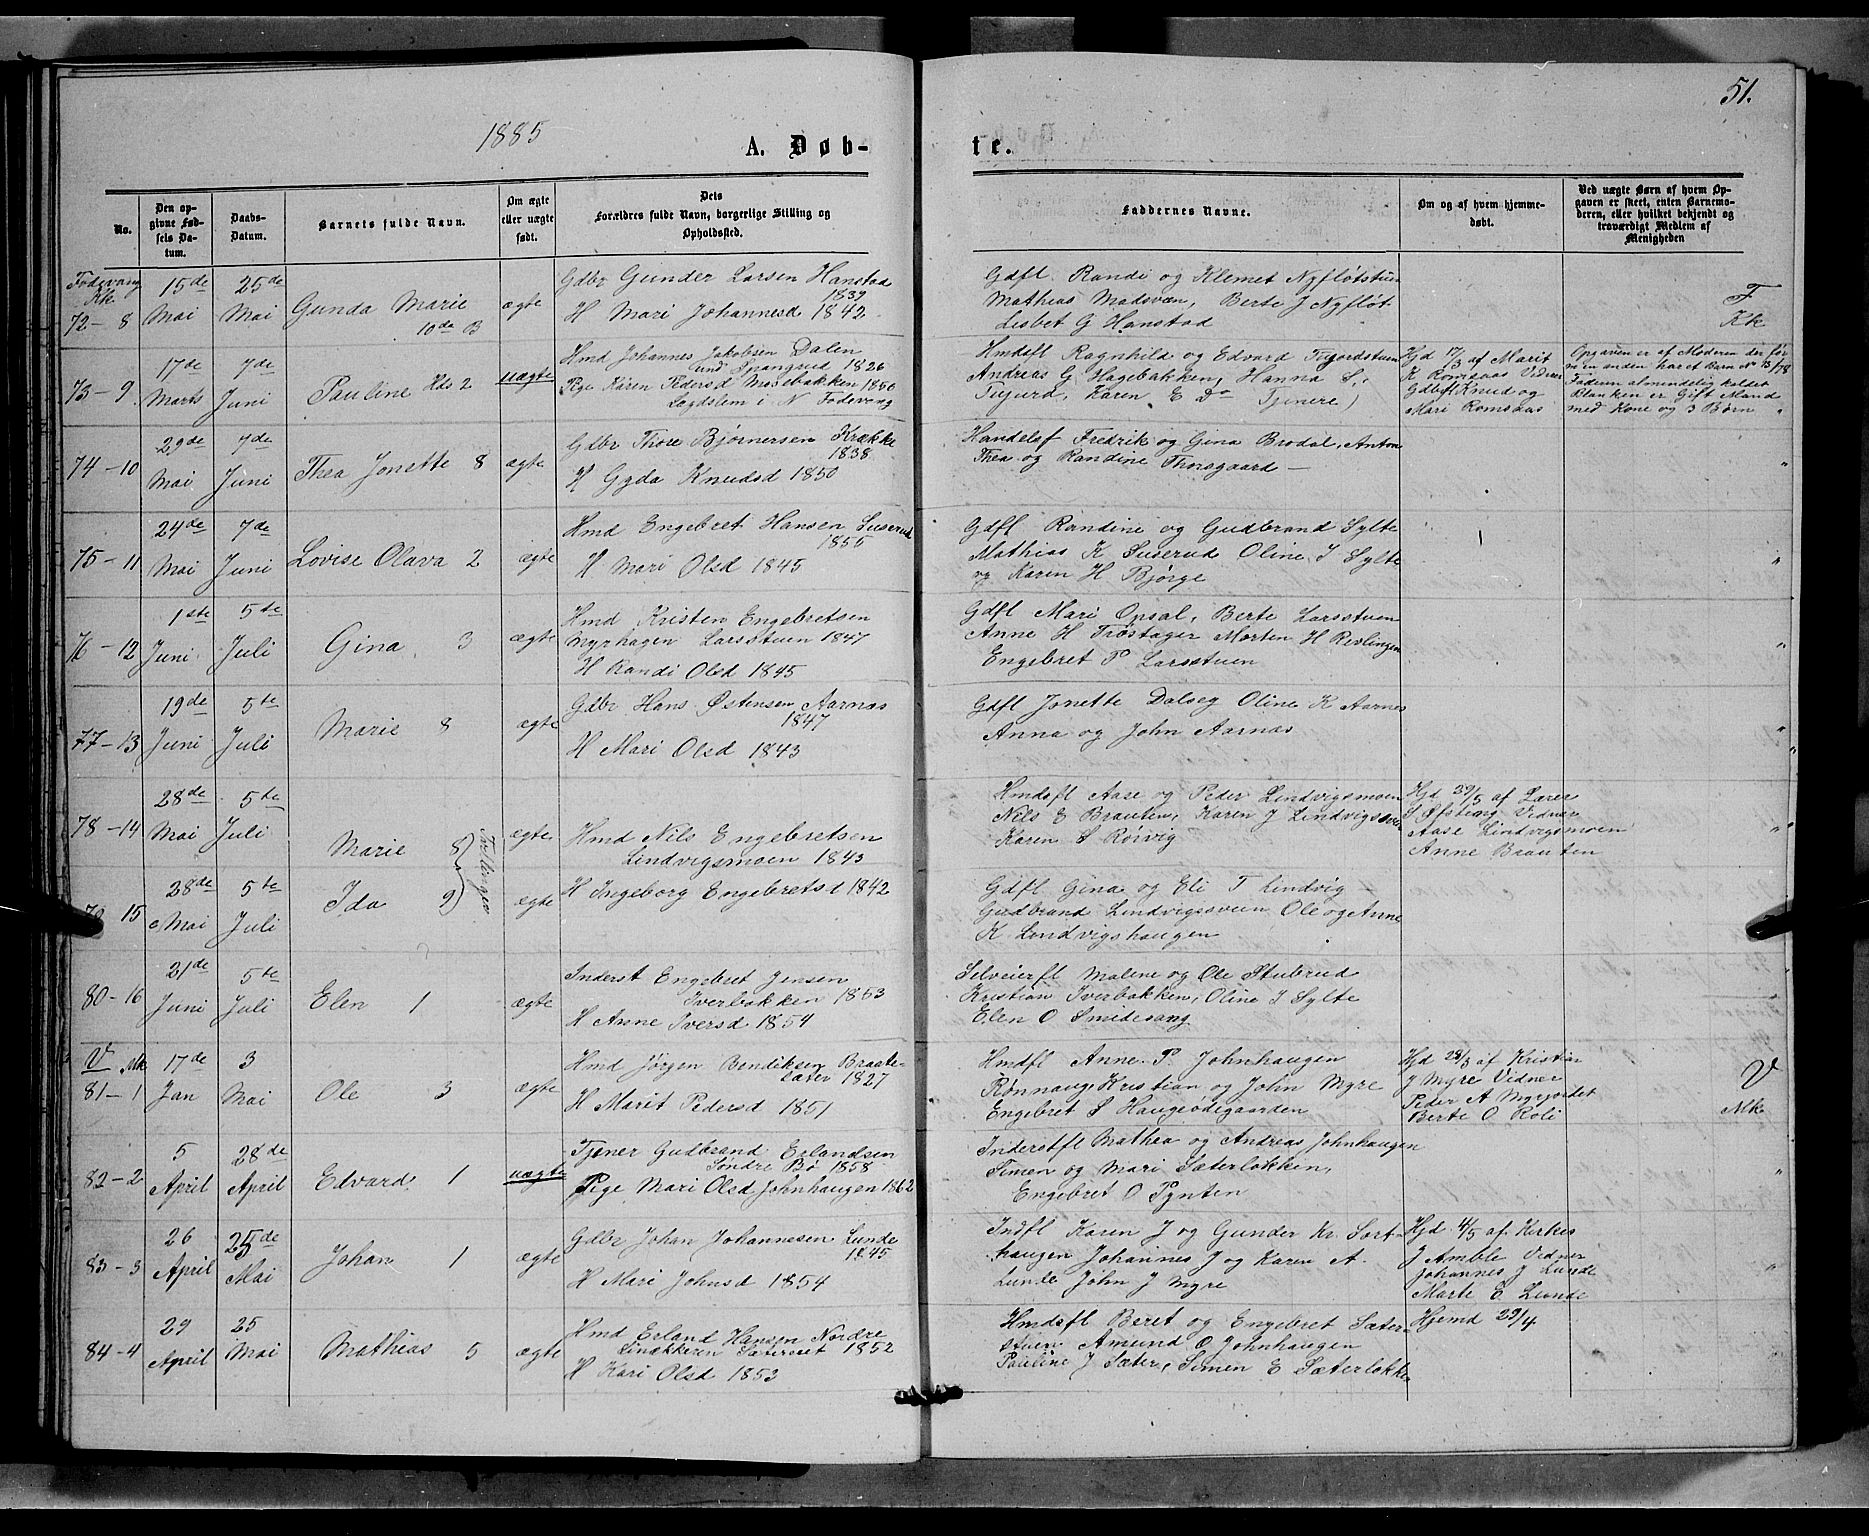 51.
1885
A. Døb-
te.
No.
Den opgivne Fødsels Datum.
Daabs-Datum.
Barnets fulde Navn.
Om ægte eller uægte født.
Dets Forældres fulde Navn, borgerlige Stilling og Opholdssted.
Faddernes Navne.
Om og af hvem hjemmedøbt.
Ved uægte Børn af hvem Opgaven er skeet, enten Barnemoderen, eller hvilket bekjendt og troværdigt Medlem af Menigheden
Fodevang Kk
72-8
15de Mai
25de Mai
Gunda Marie
10da B
ægte
Gdbr Gunder Larsen Hanstad
1839
H Mari Johannesd 1842
Gdfl Randi og Klemet Nyfløtstuen
Mathias Madsveen, Berte J Nyfløt
Lisbet G Hanstad
F
Kk
73-9
17de Marts
7de Juni
Pauline Hds 2
uægte
Hmd Johannes Jakobsen Dalen
und 1826
Pige Karen Pedersd Mosebakken 1850
Lagdslem i N Fodevang
Hmdsfl Ragnhild og Edvard
Andreas G Hagebakken, Hanna S.,
Karen E Do Tjenere)
Hjd 17/3 af Marit
K Romsaas Vidner
Gdbrfl Knud og
Mari Romsaas
Opgaven er af Moderen der før
en anden har et Barn No 13/78
Faderen almindelig kaldet
Blanken er Gift Mand
med Kone og 3 Børn "
74-10
29de Mai
7de Juni
Thea Jonette 8
ægte
Gdbr Thore Bjørnersen Krække
1838
H Gyda Knudsd 1850
Handelsf Fredrik og Gina Brodal, Anton
Thea og Randine Thorsgaard —
"
75-11
24de Mai
7de Juni
Lovise Olava 2
ægte
Hmd Engebret Hansen Suserud
1855
H Mari Olsd 1845
Gdfl Randine og Gudbrand Sylte
Mathias K Suserud Oline J Sylte
og Karen H Bjørge
"
76-12
1ste Juni
5te Juli
Gina 3
ægte
Hmd Kristen Engebretsen
Myrhagen Larsstuen 1847
H Randi Olsd 1845
Gdfl Mari Opsal, Berte Larsstuen
Anne H Trøstager Morten H Revlingen
Engebret P Larsstuen
"
77-13
19de Juni
5te Juli
Marie 8
ægte
Gdbr Hans Østensen Aarnæs
1847
H Mari Olsd 1843
Gdfl Jonette Dalseg Oline K Aarnes
Anna og John Aarnæs
"
78-14
28de Mai
5te Juli
Marie 8
Tvillinger
ægte
Hmd Nils Engebretsen
Lindvigsmoen 1843
Hmdsfl Aase og Peder Lindvigsmoen
Nils E Brauten, Karen J Lindvigsveen
Karen S Rørvig
Hjd 30/5 af Lærer
Vidner
Aase Lindvigsmoen
Anne Brauten
"
79 15
28de Mai
5te Juli
Ida 9
ægte
H Ingeborg Engebretsd 1842
Gdfl Gina og Eli T Lindvig —
Gudbrand Lindvigsveen Ole og Anne
K Lindvigshaugen
80-16
21de Juni
5te Juli
Elen 1
ægte
Inderst Engebret Jensen
Iverbakken 1853
H Anne Iversd 1854
Selveierfl Malene og Ole Stubrud
Kristian Iverbakken, Oline J Sylte
Elen O Smidesang
V Mk
81-1
17de Jan
3 Mai
Ole 3
ægte
Hmd Jørgen Bendiksen Braate-
sæter 1827
H Marit Pedersd 1851
Hmdfl Anne P. Johnhaugen
Rønnaug, Kristian og John Myre
Engebret S Haugsødegaarden
Hjd 28/3 af Kristian
J Myre Vidner
Peder A Myrjordet
Berte O Roli
V
Mk
82-2
5 April
28de April
Edvard 1
uægte
Tjener Gudbrand Erlandsen
Søndre Bø 1858
Pige Mari Olsd Johnhaugen 1862
Inderstfl Mathea og Andreas Johnhaugen
Simen og Mari Sæterløkken,
Engebret O Pynten
"
83-3
26 April
25de Mai
Johan 1
ægte
Gdbr Johan Johannesen Lunde
1845
H Mari Johnsd 1854
Indfl Karen J og Gunder Kr. Sort-
haugen Johannes J og Karen A.
Lunde John J Myre
Hjd 4/5 af Kirkes
J Amble Vidner
Johannes J Lunde
Marte E Lunde
"
84-4
29 April
25 Mai
Mathias 5
ægte
Hmd Erland Hansen Nordre
1852
H Kari Olsd 1853
Hmdsfl Beret og Engebret Sæter-
stuen Amund O Johnhaugen
Pauline J Sæter, Simen E Sæterløkken
Hjemd 29/4